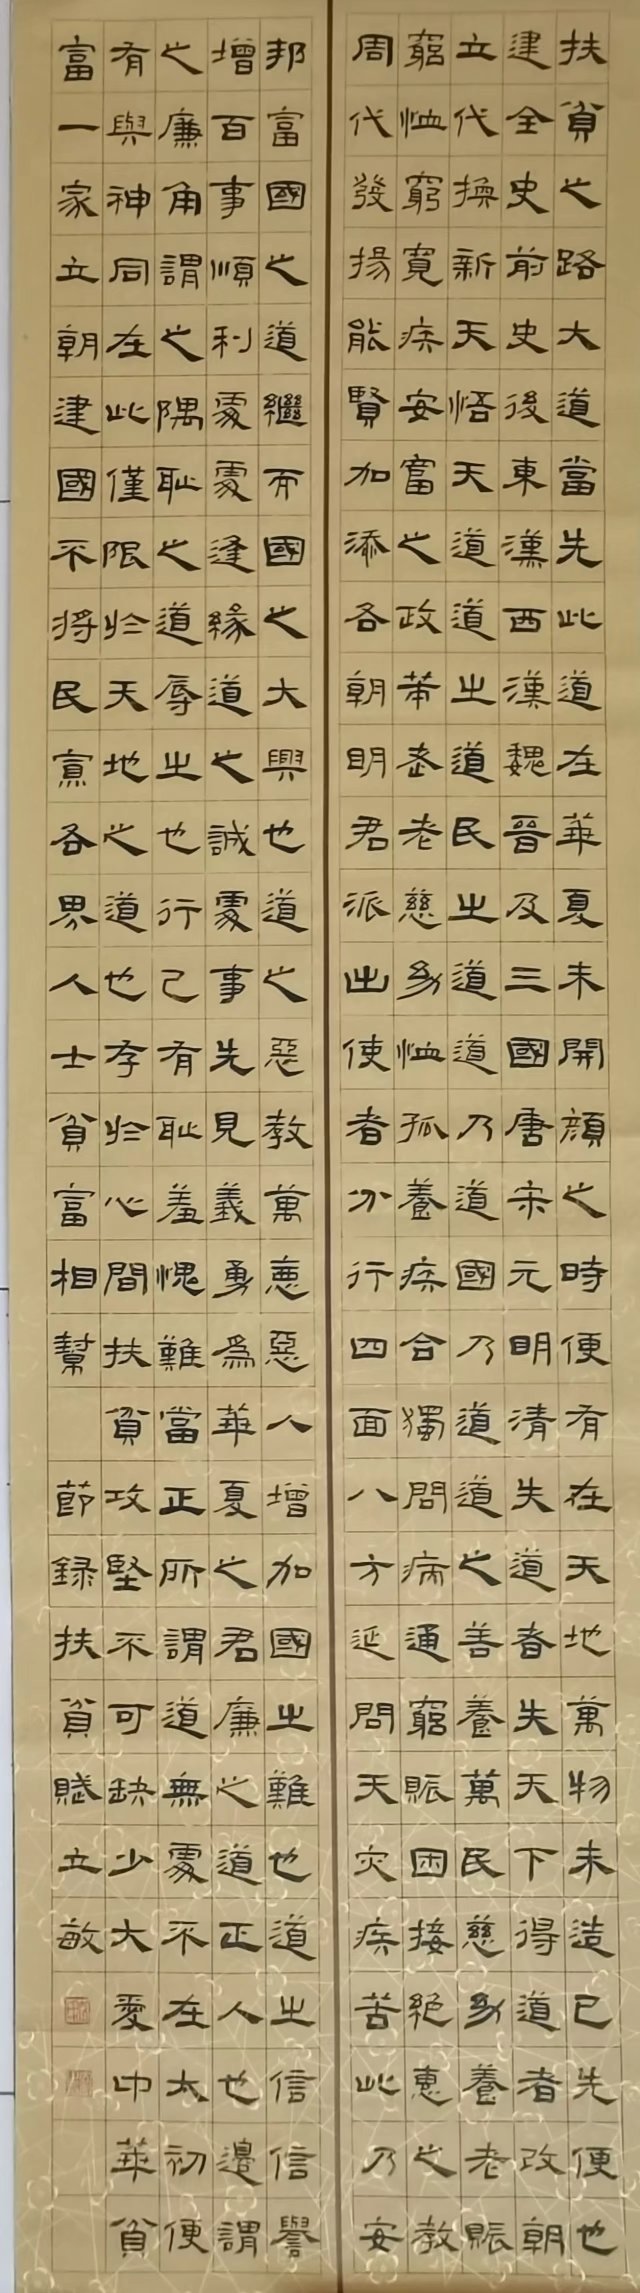 扶貧之路大道當先此道在華夏未開顏之時便有在天地萬物未造已先便也
建全史前史後東漢西漢魏晉及三國唐宋元明清失道者失天下得道者改朝
立代換新天悟天道道之道民之道道乃道國乃道道之善養萬民慈幼養老賑
窮恤窮寬疾安富之政老老慈幼恤孤養疾合獨問病通窮賑困接絕惠之教
周代發揚能賢加添各朝明君派出使者分行四面八方延問天災疾苦此乃安
邦富國之道繼而國之大興也道之惡教萬惡惡人增加國之難也道之信信譽
增百事順利處處逢緣道之誠處事先見義勇為華夏之君廉之道正人也邊謂
之廉角謂之隅恥之道辱之也行己有恥羞愧難當正所謂道無處不在太初便
有與神同在此僅限於天地之道也存於心間扶貧攻堅不可缺少大愛中華貧
富一家立朝建國不將民黨各界人士貧富相幫 節録扶貧賦立敏